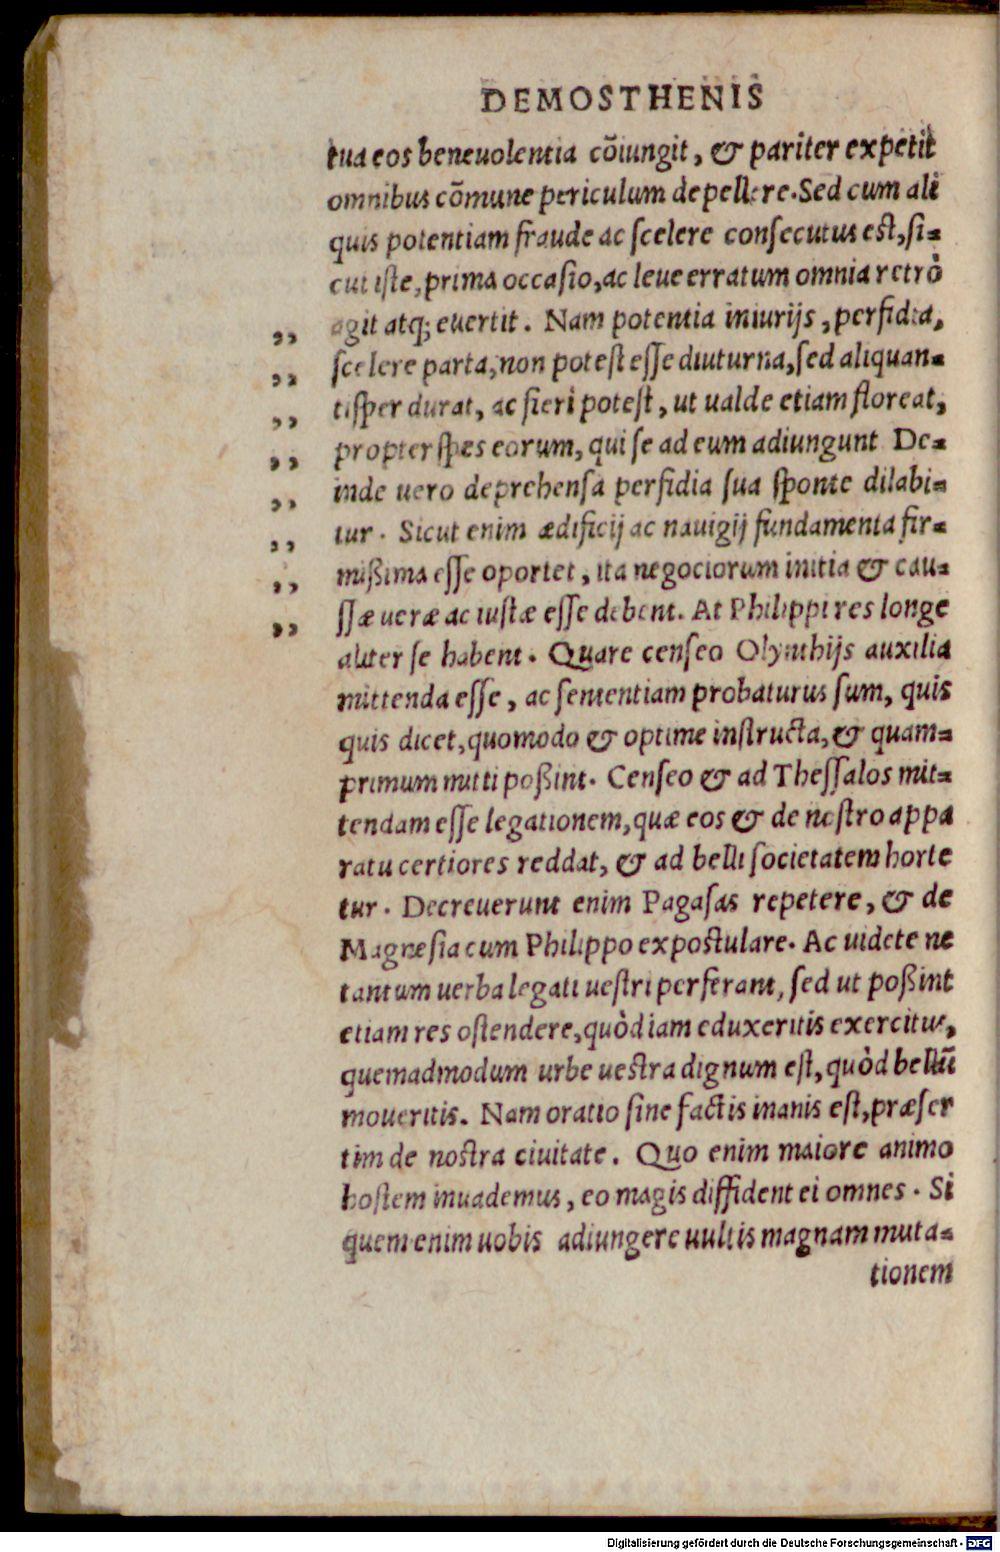 DEMOSTHENIS
tua eos beneuolentia cõiungit, & pariter expetit
omnibus cõmune periculum depellere. Sed cum ali
quis potentiam fraude ac scelere consecutus est, si-
cut iste, prima occasio, ac leue erratum omnia retrò
,, agit atq; euertit. Nam potentia iniurijs, perfidia,
,, scelere parta, non potest esse diuturna, sed aliquan-
,, tisper durat, ac fieri potest, ut ualde etiam floreat,
,, propter spes eorum, qui se ad eum adiungunt De-
,, inde uero deprehensa perfidia sua sponte dilabi-
,, tur. Sicut enim ædificij ac nauigij fundamenta fir-
,, mißima esse oportet, ita negociorum initia & cau-
,, ssæ ueræ ac iustæ esse debent. At Philippi res longe
aliter se habent. Quare censeo Olynthijs auxilia
mittenda esse, ac sententiam probaturus sum, quis
quis dicet, quomodo & optime instructa, & quam-
primum mitti poßint. Censeo & ad Thessalos mit-
tendam esse legationem, quæ eos & de nostro appa
ratu certiores reddat, & ad belli societatem horte
tur. Decreuerunt enim Pagasas repetere, & de
Magnesia cum Philippo expostulare. Ac uidete ne
tantum uerba legati uestri perferant, sed ut poßint
etiam res ostendere, quòd iam eduxeritis exercitus,
quemadmodum urbe uestra dignum est, quòd bellũ
moueritis. Nam oratio sine factis inanis est, præser
tim de nostra ciuitate. Quo enim maiore animo
hostem inuademus, eo magis diffident ei omnes. Si
quem enim uobis adiungere uultis magnam muta-
tionem
Digitalisierung gefördert durch die Deutsche Forschungsgemeinschaft - DFG